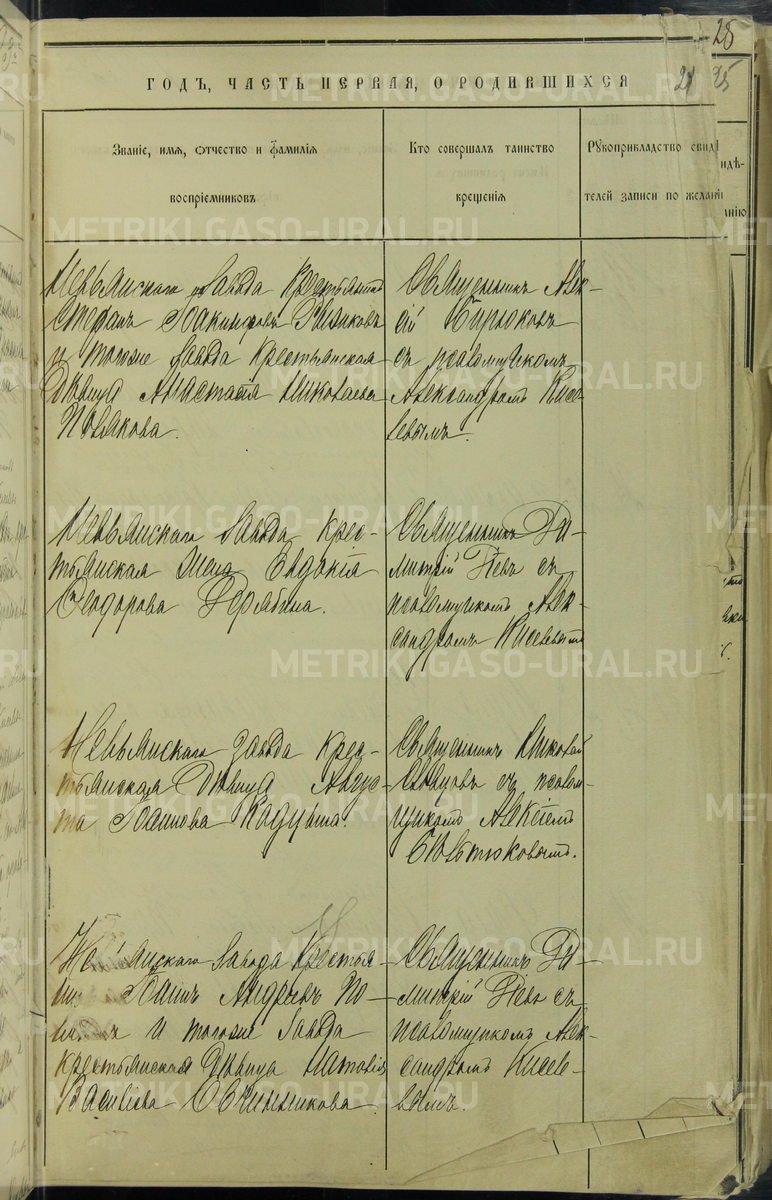 28
ГОДЪ, ЧАСТЬ ПЕРВАЯ, О РОДИВШИХСЯ
25
Званіе, имя, отчество и фамилія
воспріемниковъ
Кто совершалъ таинство
крещенія
Рукоприкладство свид
телей записи по желані
Невьянскаго Завода Крестьянинъ
Стефанъ Іоакимовъ
и тогоже Завода Крестьянская
Дѣвица Анастасія Николаева
Полякова.
Священникъ Алек-
сій Бирюковъ
съ псаломщикомъ
Александромъ Кисе-
левымъ.
Невьянскаго Завода Крес-
тьянская Жена Евдокія
Ѳеодорова Дерябина.
Священникъ Ди-
митрій Невъ съ
псаломщикомъ Алек-
сандромъ Киселевымъ
Невьянскаго Завода Крес-
тьянская Дѣвица
Іоаннова
Священникъ Николай
съ псалом-
щикомъ Алексіемъ
Невьянскаго Завода Крестья-
Іоаннъ Андреевъ По-
и тогоже Завода
крестьянская Дѣвица Наталія
Василіева Овчинникова.
Священникъ Ди-
митрій Невъ съ
псаломщикомъ Алек-
сандромъ Киселе-
вымъ.
METRIKI.GASO-URAL.RU